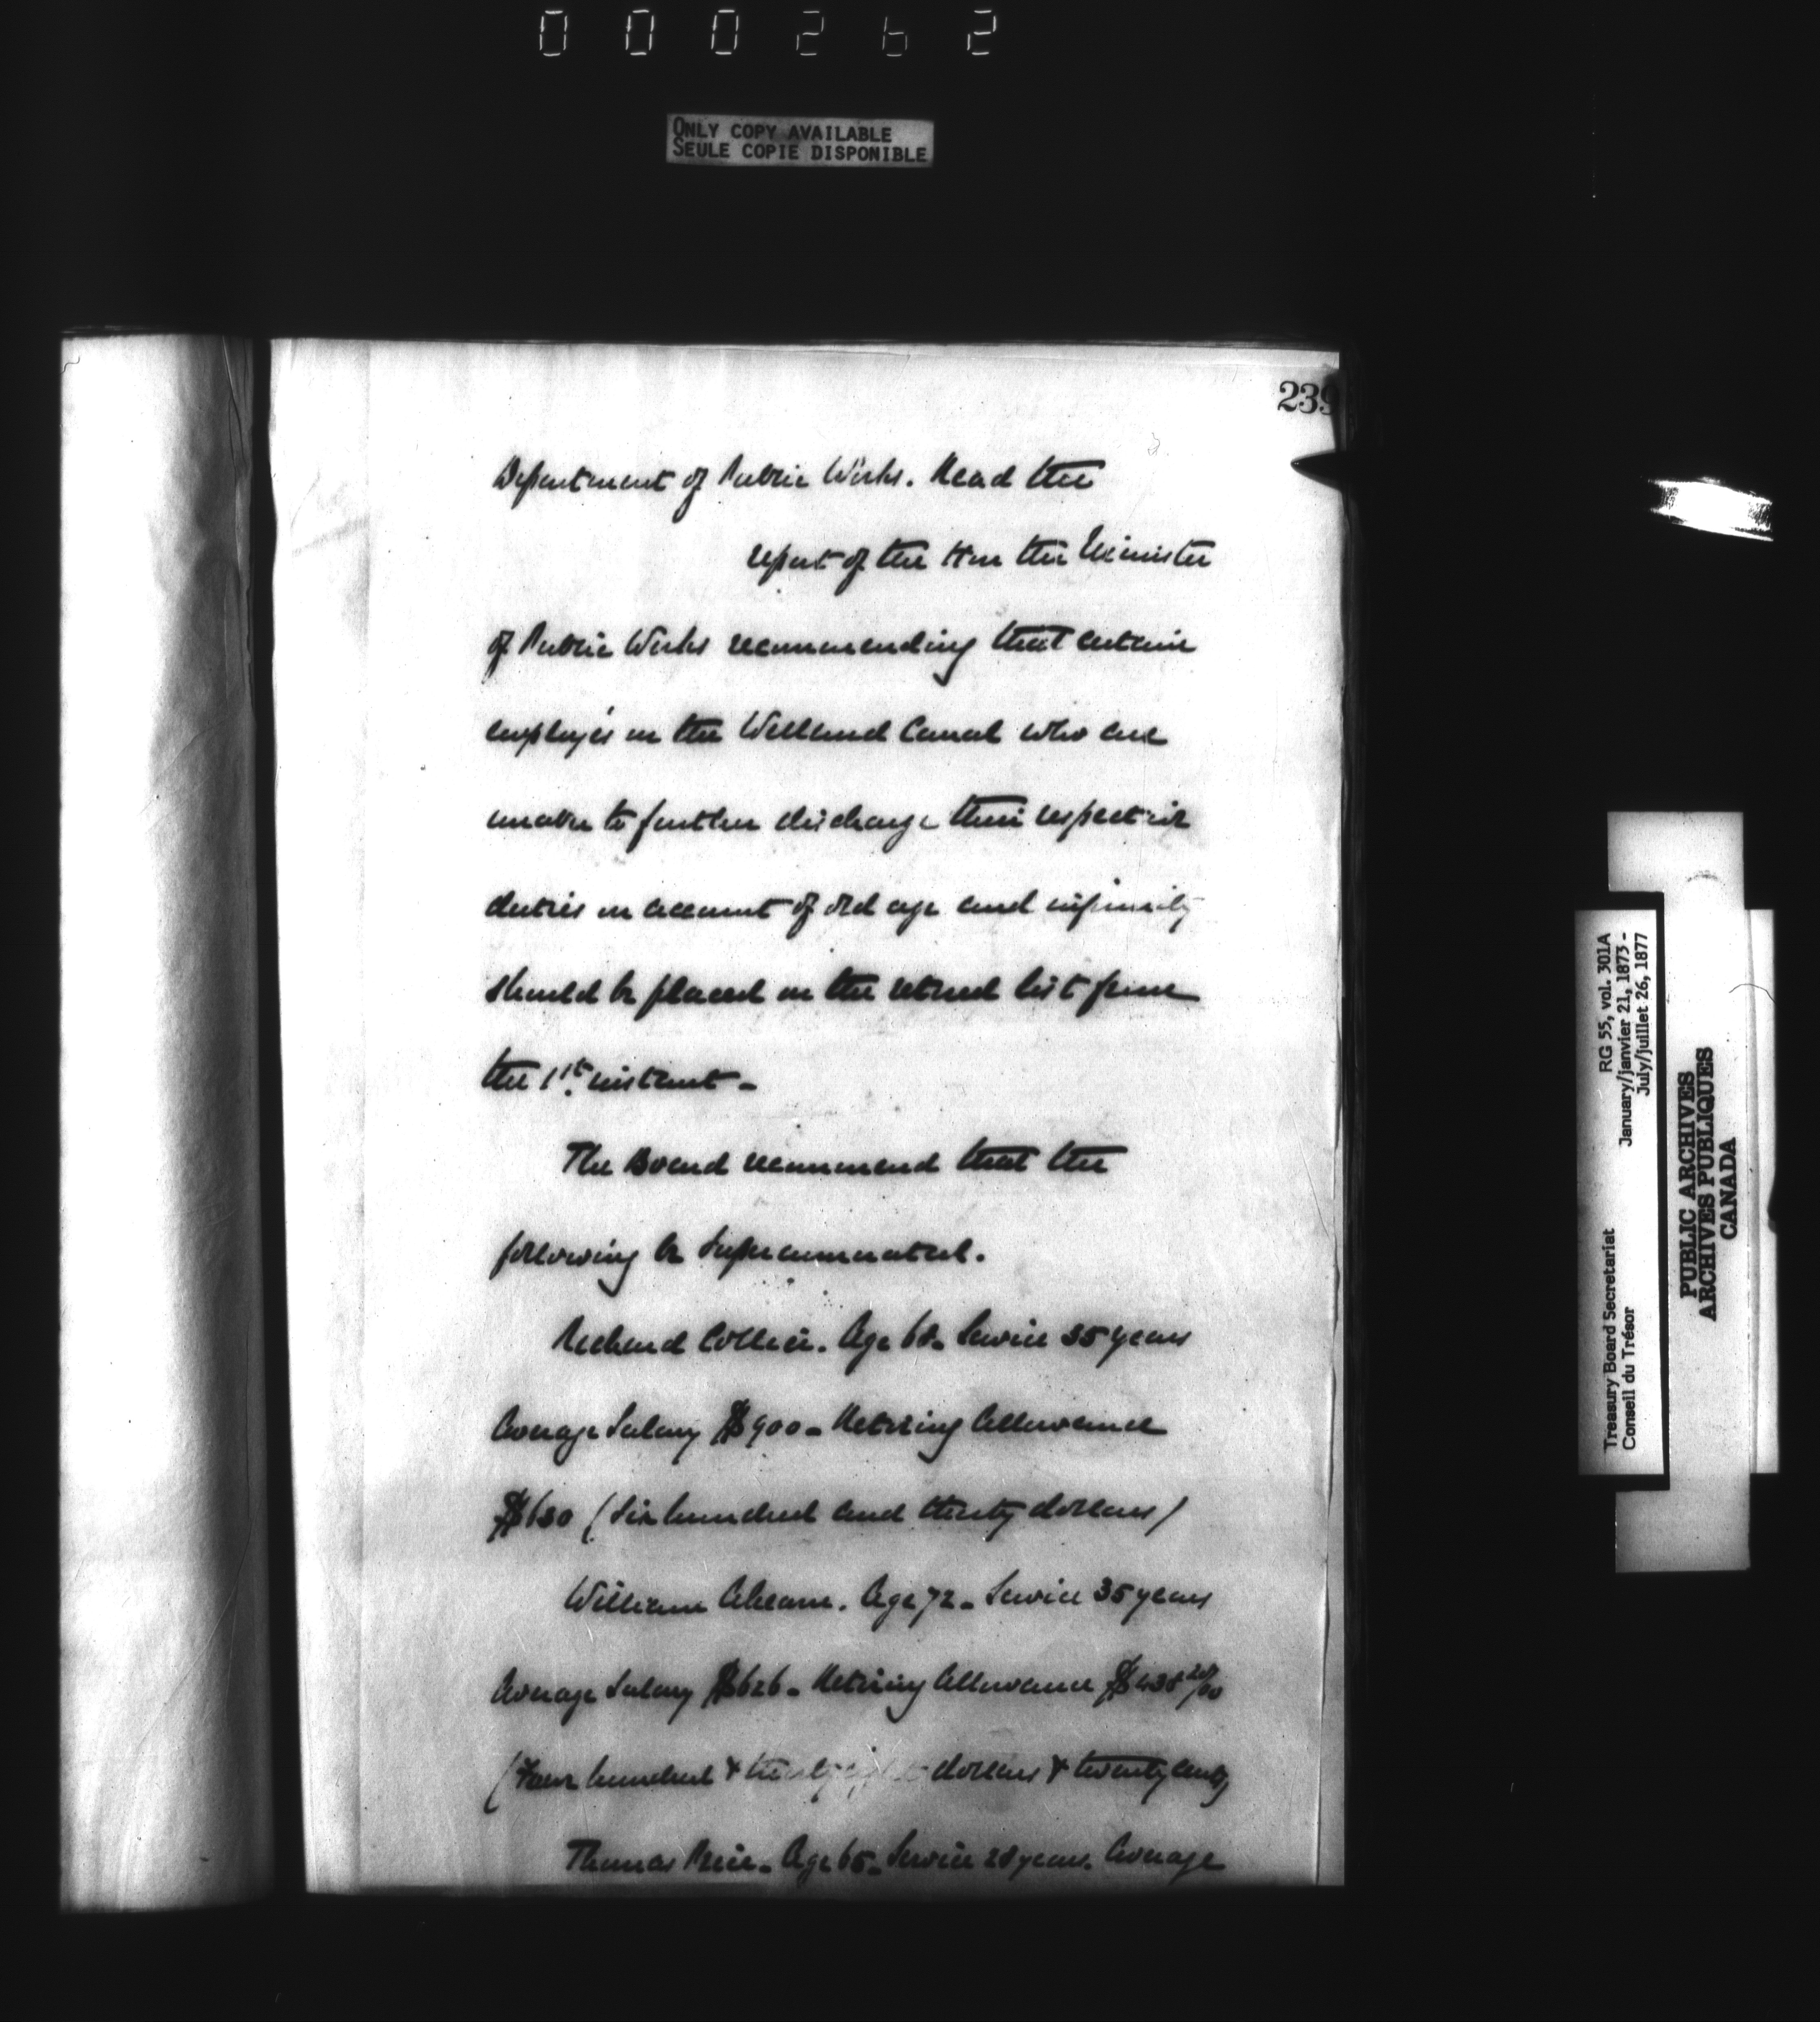 000262
ONLY COPY AVAILABLE
SEULE COPIE DISPONIBLE
239
Department of Public Works. Read the
report of the Hon the Minister
of Public Works recommending that certain
employés on the Welland Canal who are
unable to further discharge their respective
duties on account of old age and infirmity
should be placed on the retired list from
the 1st. instant -
The Board recommend that the
following be Superannuated.
Richard Collier. Age 68 - Service 35 years
Average Salary $900 - Retiring Allowance
$630 (Six hundred and thirty dollars)
William Ahearn. Age 72 - Service 35 years
Average Salary $626 - Retiring Allowance $438 20/100
(Four hundred & thirty eight dollars & twenty cents)
Thomas Price - Age 65 - Service 28 years. Average
RG 55, vol. 301A
January/janvier 21, 1873 -
July/juillet 26, 1877
Treasury Board Secretariat
Conseil du Trésor
PUBLIC ARCHIVES
ARCHIVES PUBLIQUES
CANADA